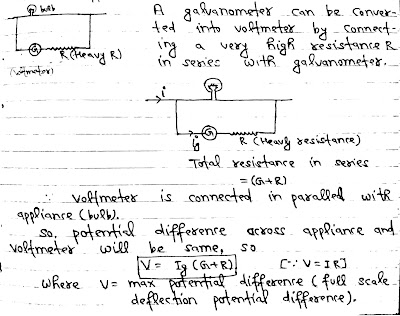 bulb
G
R (Heavy R)
(voltmeter)
A galvanometer can be conver-
ted into voltmeter by connect-
ing a very high resistance R
in series with galvanometer.
i
G
ig
R (Heavy resistance)
Total resistance in series
= (G+R)
∴ voltmeter is connected in paralled with
appliance (bulb).
so, potential difference across appliance and
voltmeter will be same, so
V = Ig (G+R) [∵ V = IR]
where V = max potential difference (full scale
deflection potential difference).